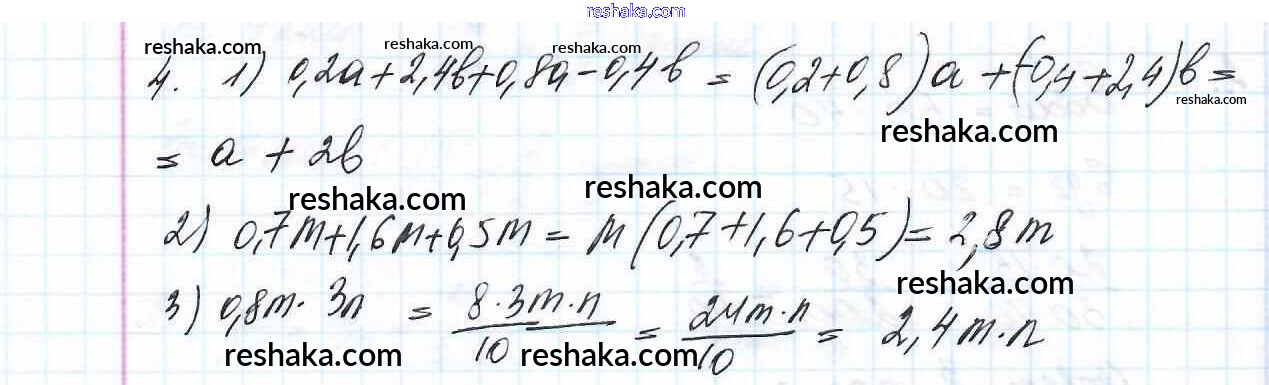 reshaka.com
reshaka.com reshaka.com reshaka.com
4. 1) 0,2a+2,4b+0,8a-0,4b = (0,2+0,8)a+(-0,4+2,4)b =
reshaka.com
reshaka.com
= a + 2b
reshaka.com reshaka.com
2) 0,7m+1,6m+0,5m = m (0,7+1,6+0,5) = 2,8m
reshaka.com
3) 0,8m · 3n = 8·3m·n/10 = 24m·n/10 = 2,4m·n
reshaka.com reshaka.com reshaka.com